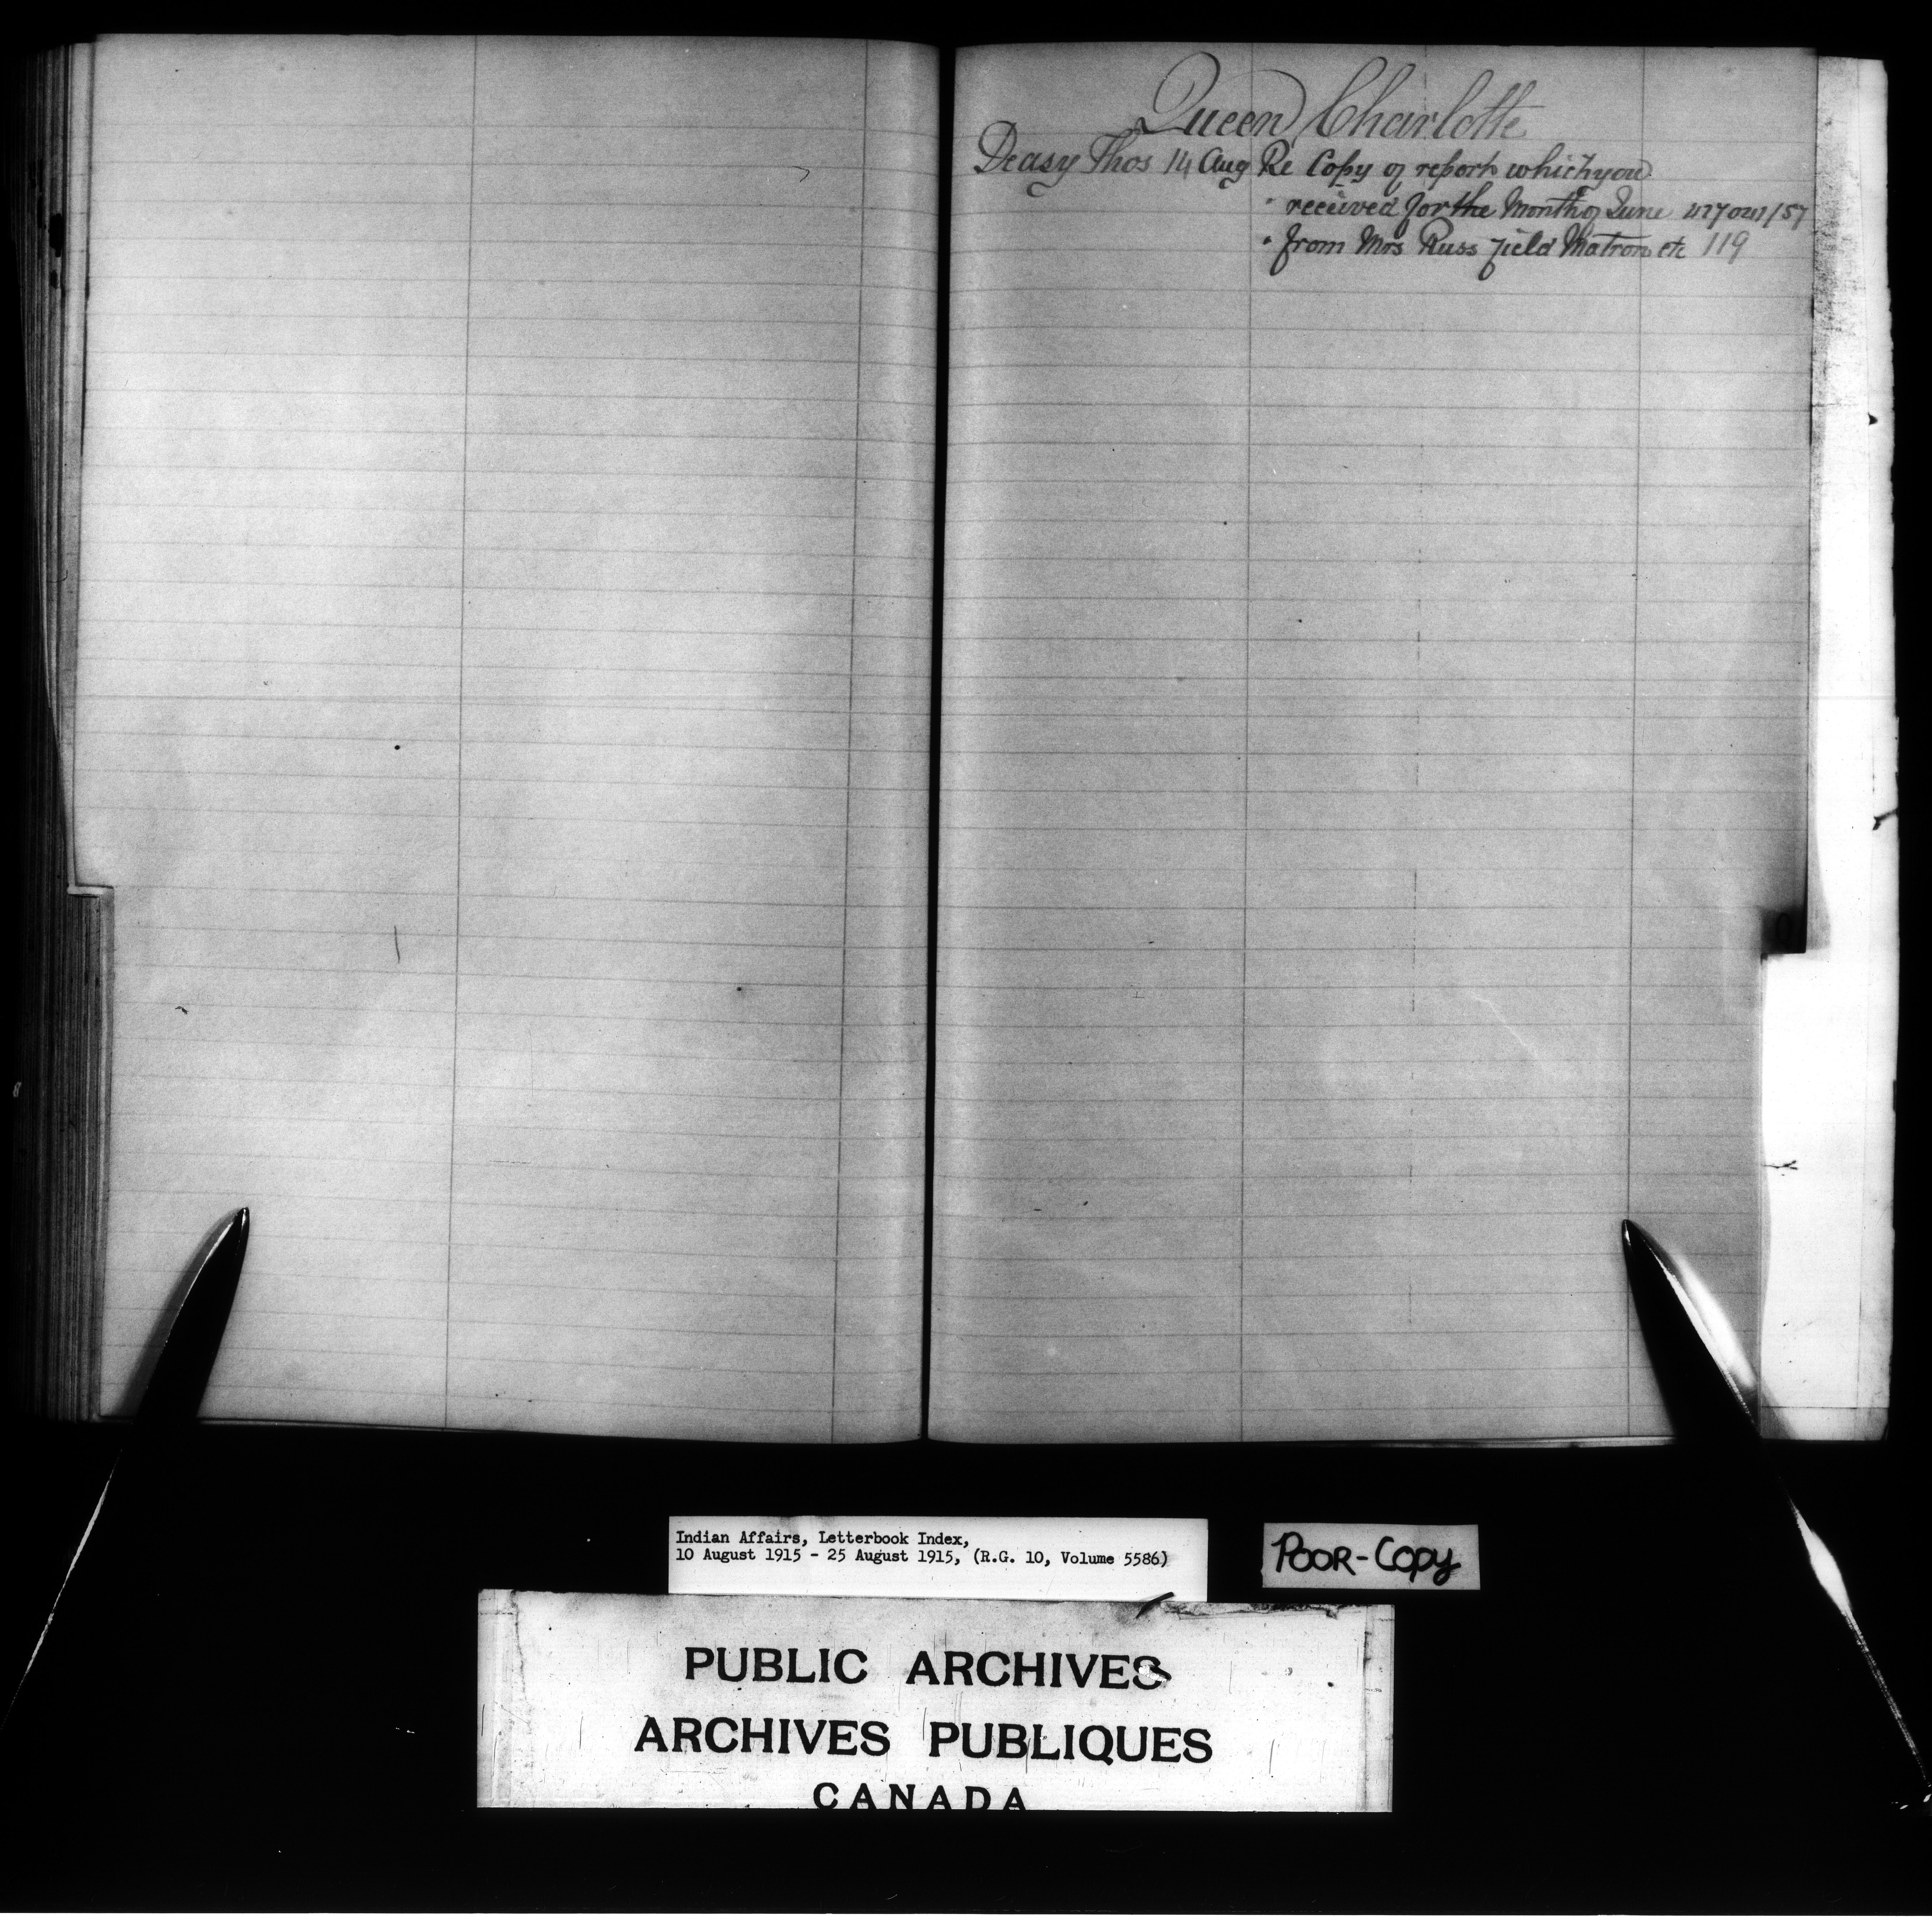 Queen Charlotte
Deasy Thos 14 Aug Re Copy of report which you
" received for the Month of June 427041/57
" from Mrs Russ Field Matron etc 119
Indian Affairs, Letterbook Index,
10 August 1915 - 25 August 1915, (R.G. 10, Volume 5586)
POOR-COPY
PUBLIC ARCHIVES
ARCHIVES PUBLIQUES
CANADA